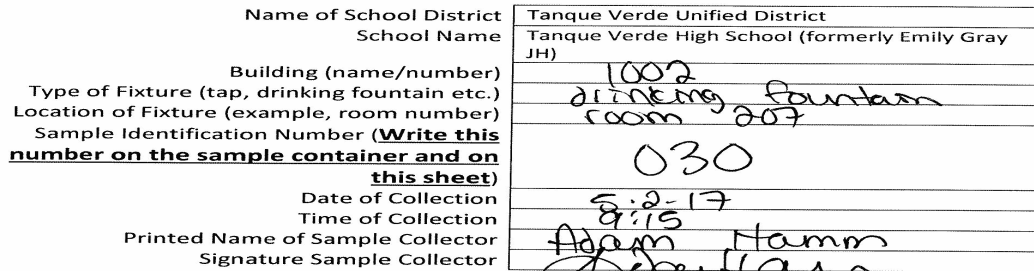 Name of School District Tanque Verde Unified District
School Name Tanque Verde High School (formerly Emily Gray JH)
Building (name/number) 1002
Type of Fixture (tap, drinking fountain etc.) drinking fountain
Location of Fixture (example, room number) room 207
Sample Identification Number (Write this
number on the sample container and on
this sheet) 030
Date of Collection 5.2-17
Time of Collection 9:15
Printed Name of Sample Collector Adam Hamm
Signature Sample Collector